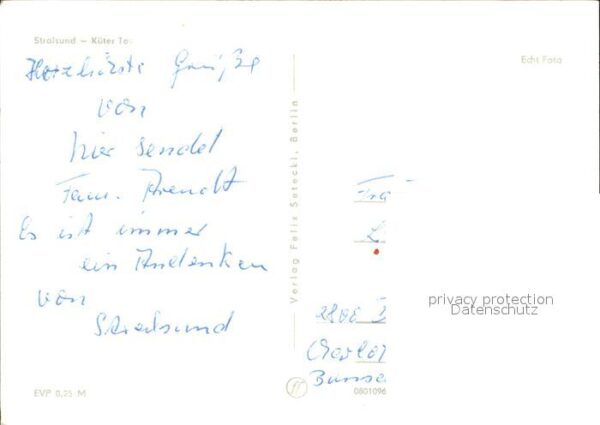 Stralsund – Küter To
Echt Foto
Herzlichste Grüße
von
hier sendet
Fam. Arendt
Es ist immer
ein Andenken
von
Stralsund
Verlag Felix Setecki, Berlin
Fra
L
privacy protection
Datenschutz
EVP 0,25 M
0801096